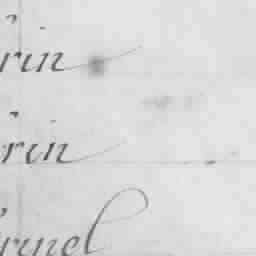 rin
rin
runel